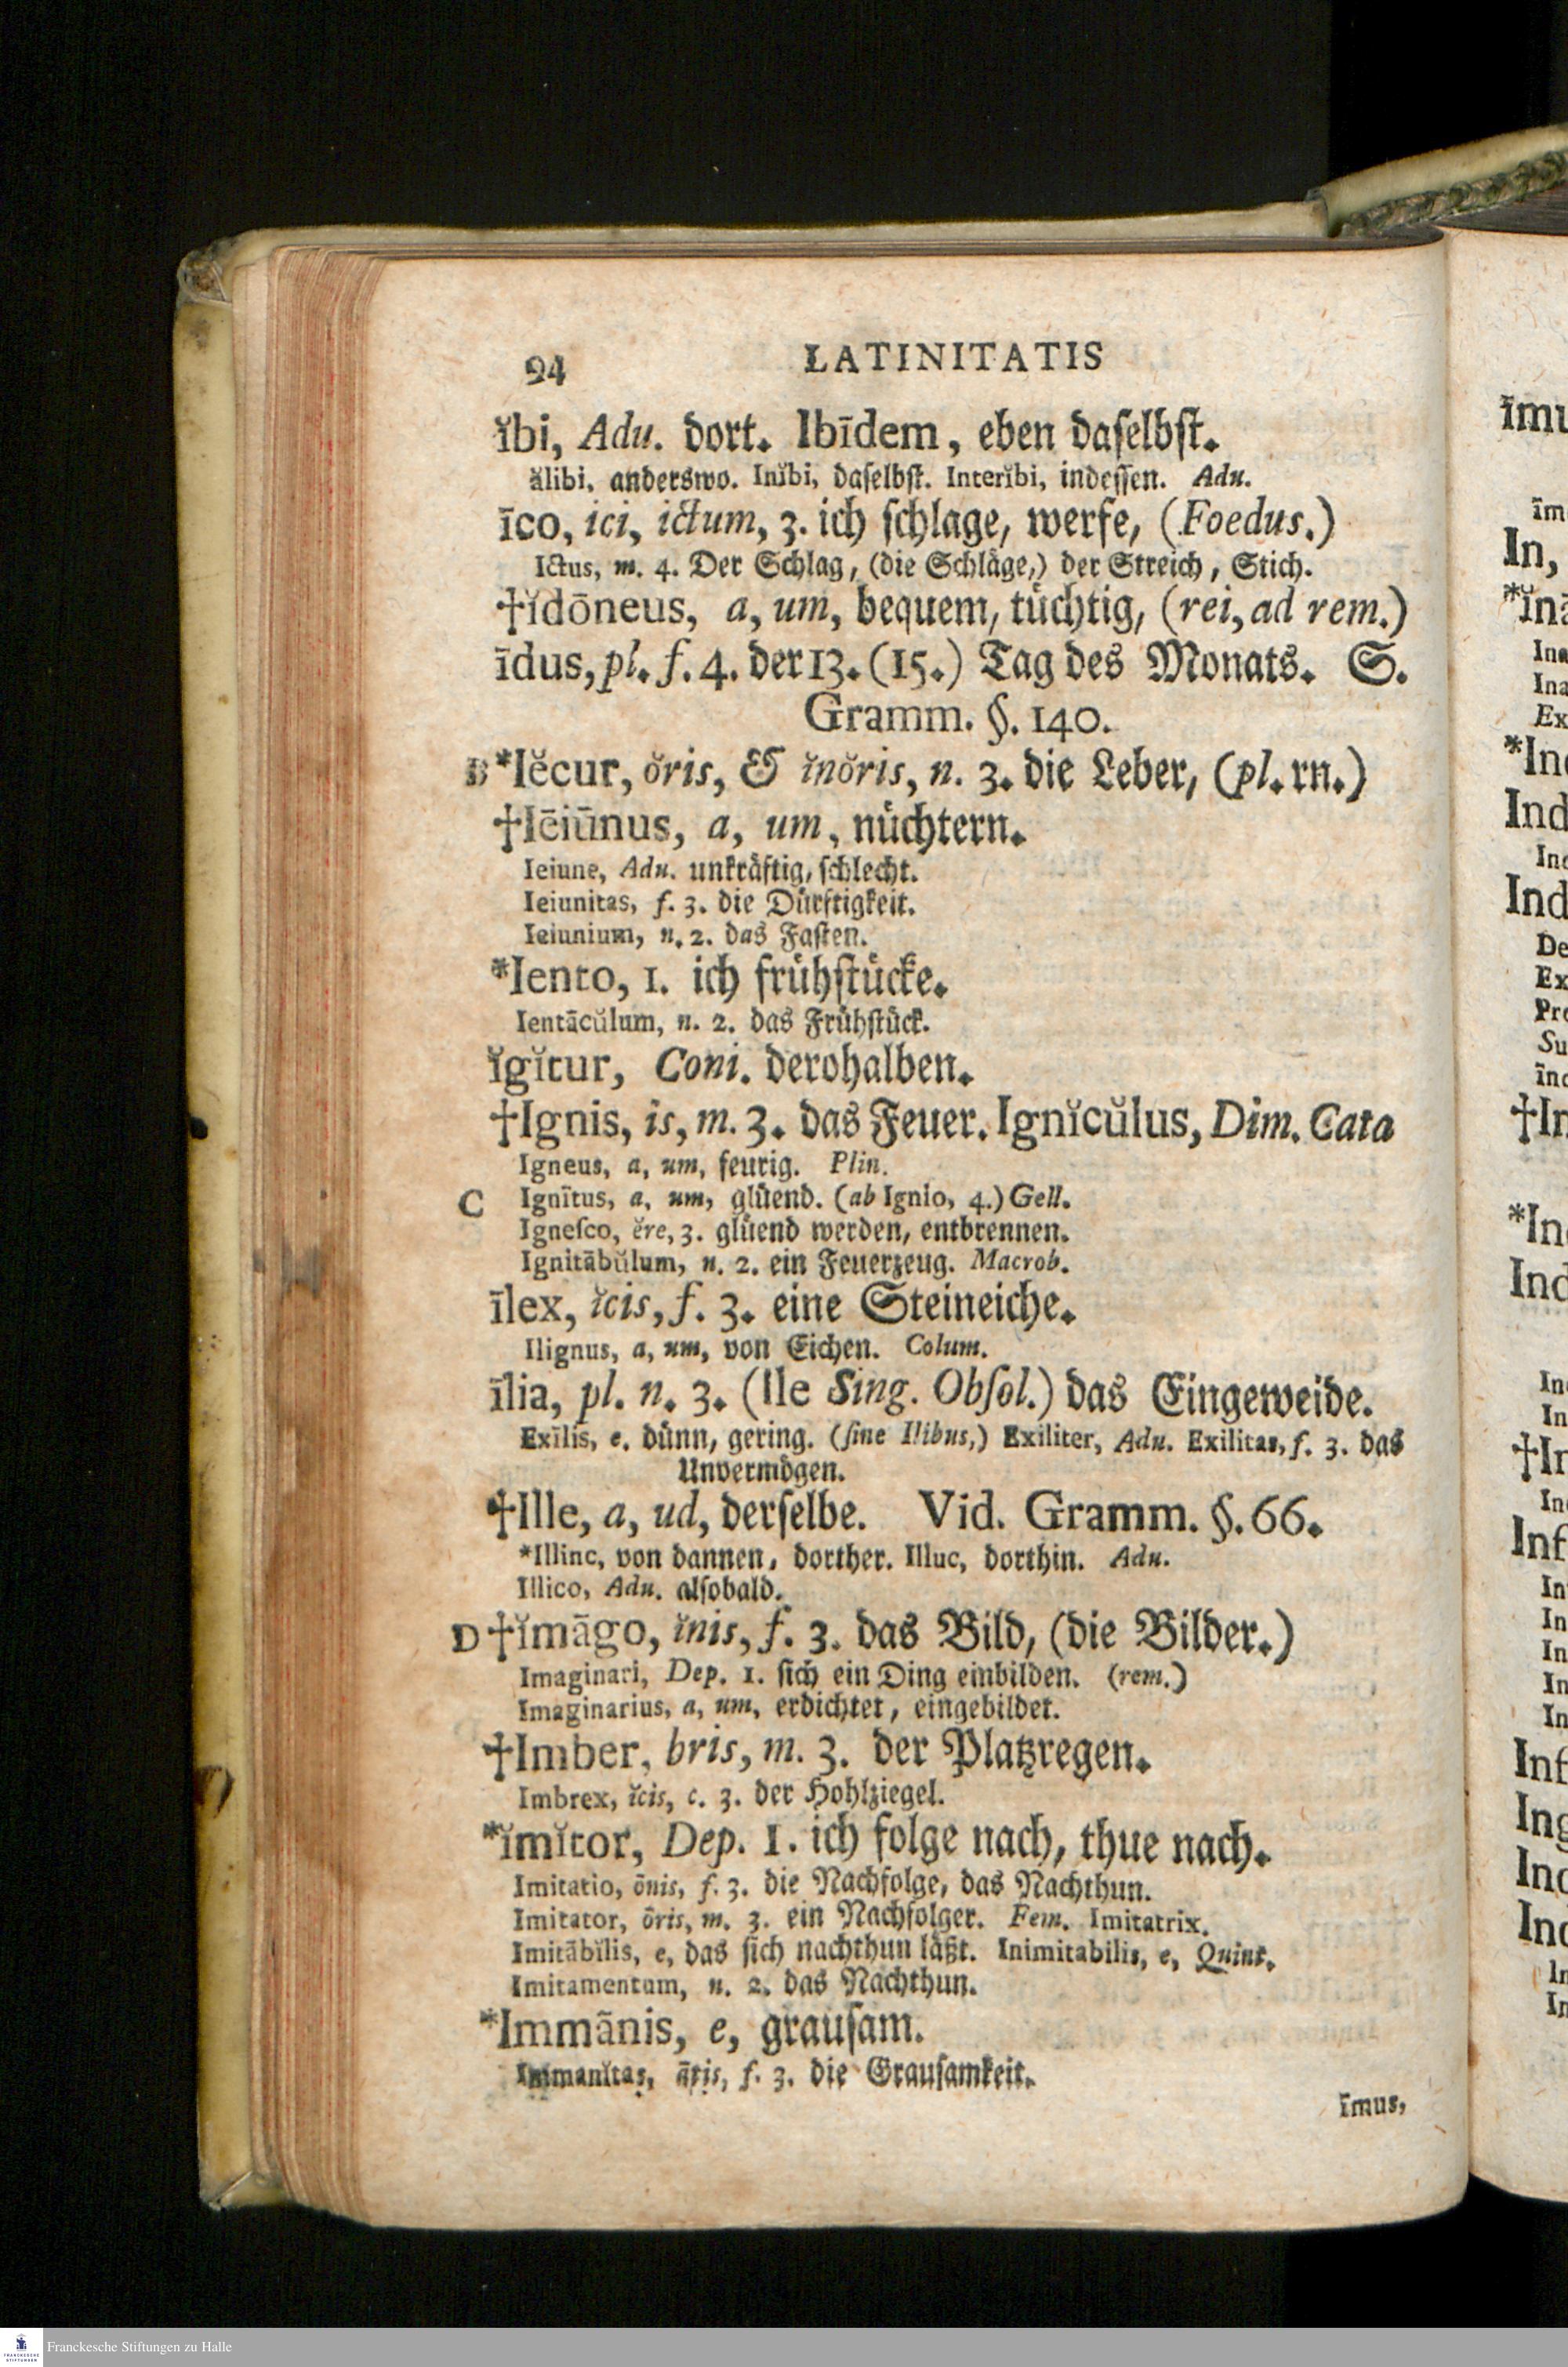 94 LATINITATIS
ĭbi, Adu. dort. Ibīdem, eben daſelbſt.
ălibi, anderswo. Inĭbi, daſelbſt. Interĭbi, indeſſen. Adu.
īco, ici, ictum, 3. ich ſchlage, werfe, (Foedus.)
Ictus, m. 4. Der Schlag, (die Schläge,) der Streich, Stich.
†ĭdōneus, a, um, bequem, tüchtig, (rei, ad rem.)
īdus, pl. f. 4. der 13. (15.) Tag des Monats. S.
Gramm. §. 140.
B *Iĕcur, ŏris, & ĭnŏris, n. 3. die Leber, (pl. rn.)
†Iēiūnus, a, um, nüchtern.
Ieiune, Adu. unkräftig, ſchlecht.
Ieiunitas, f. 3. die Dürftigkeit.
Ieiunium, n. 2. das Faſten.
*Iento, 1. ich frühſtücke.
Ientācŭlum, n. 2. das Frühſtück.
ĭgĭtur, Coni. derohalben.
†Ignis, is, m. 3. das Feuer. Ignĭcŭlus, Dim. Cata
Igneus, a, um, feurig. Plin.
C Ignītus, a, um, glüend. (ab Ignio, 4.) Gell.
Igneſco, ĕre, 3. glüend werden, entbrennen.
Ignitābŭlum, n. 2. ein Feuerzeug. Macrob.
īlex, ĭcis, f. 3. eine Steineiche.
Ilignus, a, um, von Eichen. Colum.
īlia, pl. n. 3. (Ile Sing. Obſol.) das Eingeweide.
Exīlis, e, dünn, gering. (ſine Ilibus,) Exiliter, Adu. Exilitas, f. 3. das
Unvermögen.
†Ille, a, ud, derſelbe. Vid. Gramm. §. 66.
*Illinc, von dannen, dorther. Illuc, dorthin. Adu.
Illico, Adu. alſobald.
D †ĭmāgo, ĭnis, f. 3. das Bild, (die Bilder.)
Imaginari, Dep. 1. ſich ein Ding einbilden. (rem.)
Imaginarius, a, um, erdichtet, eingebildet.
†Imber, bris, m. 3. der Platzregen.
Imbrex, ĭcis, c. 3. der Hohlziegel.
*ĭmĭtor, Dep. 1. ich folge nach, thue nach.
Imitatio, ōnis, f. 3. die Nachfolge, das Nachthun.
Imitator, ōris, m. 3. ein Nachfolger. Fem. Imitatrix.
Imitābĭlis, e, das ſich nachthun läßt. Inimitabilis, e, Quint.
Imitamentum, n. 2. das Nachthun.
*Immānis, e, grauſam.
Immanĭtas, ātis, f. 3. die Grauſamkeit.
īmus,
īmu
īm
In,
*ĭnā
Ina
Ex
*In
Ind
Ind
De
Ex
Pro
Su
īnd
†In
*In
Ind
In
In
†In
In
Inf
In
In
In
In
In
Inf
Ing
In
In
Franckesche Stiftungen zu Halle